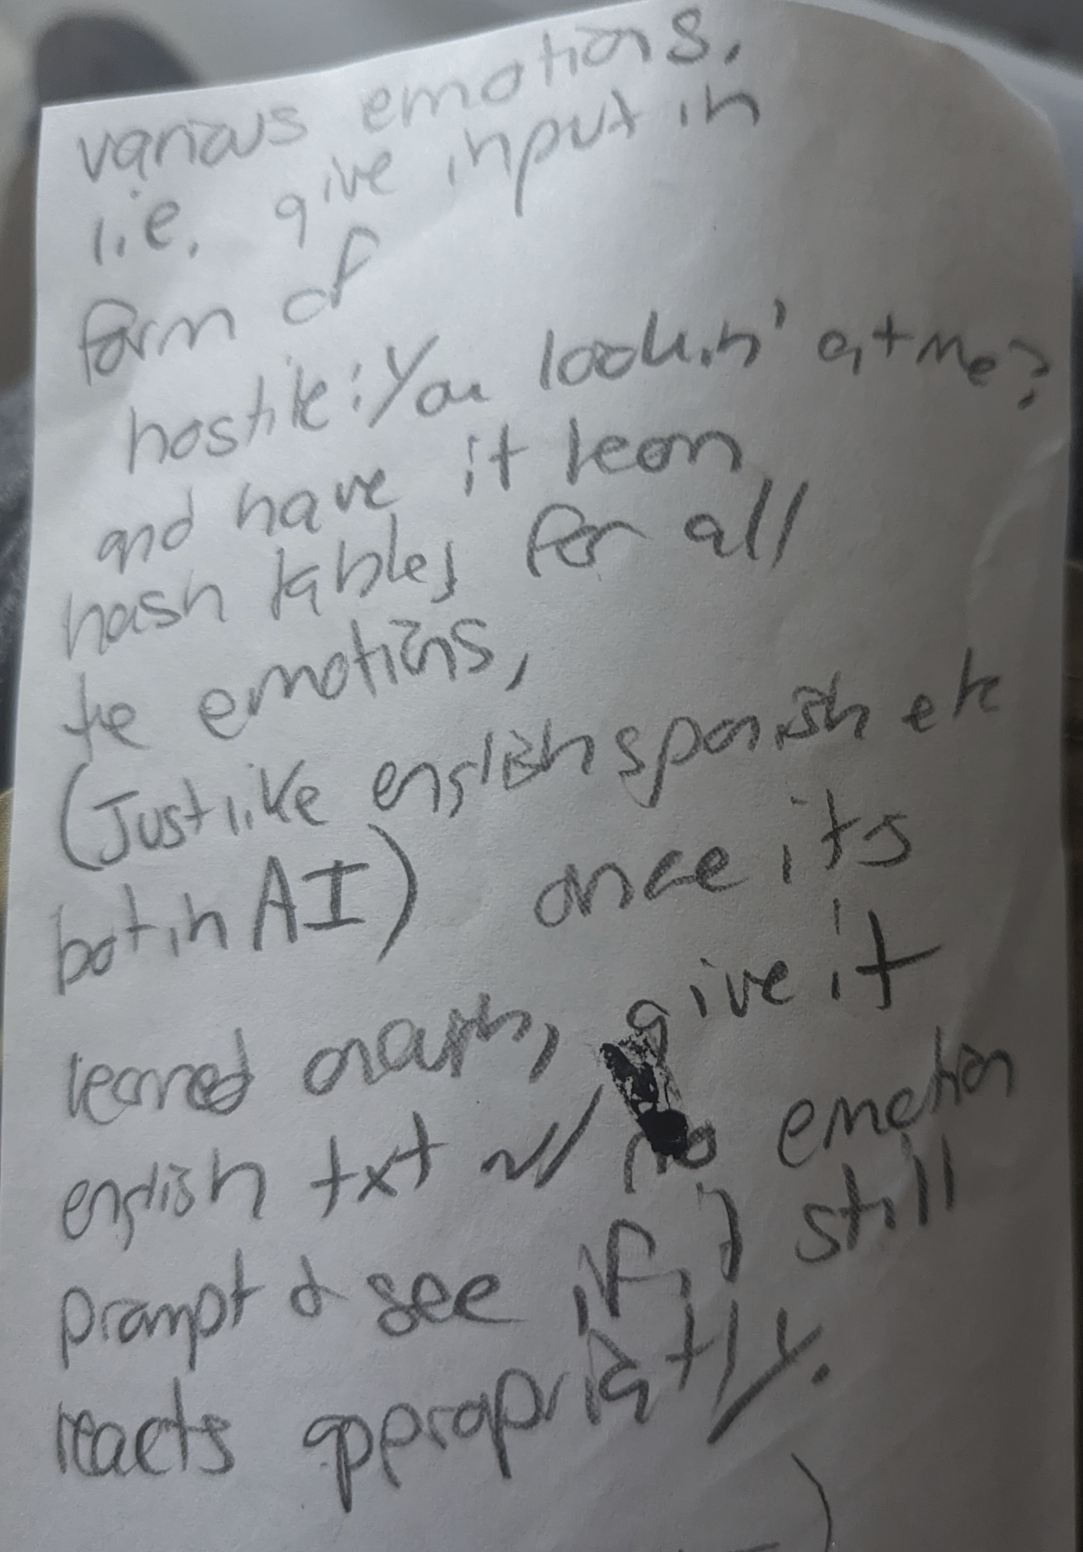 various emotions,
i.e. give input in
form of
hostile: You lookin' at me?
and have it learn
hash tables for all
the emotions,
(Just like english spanish etc
bot in AI) once its
learned enough, give it
english txt w/ no emotion
prompt & see if it still
reacts appropriatly.